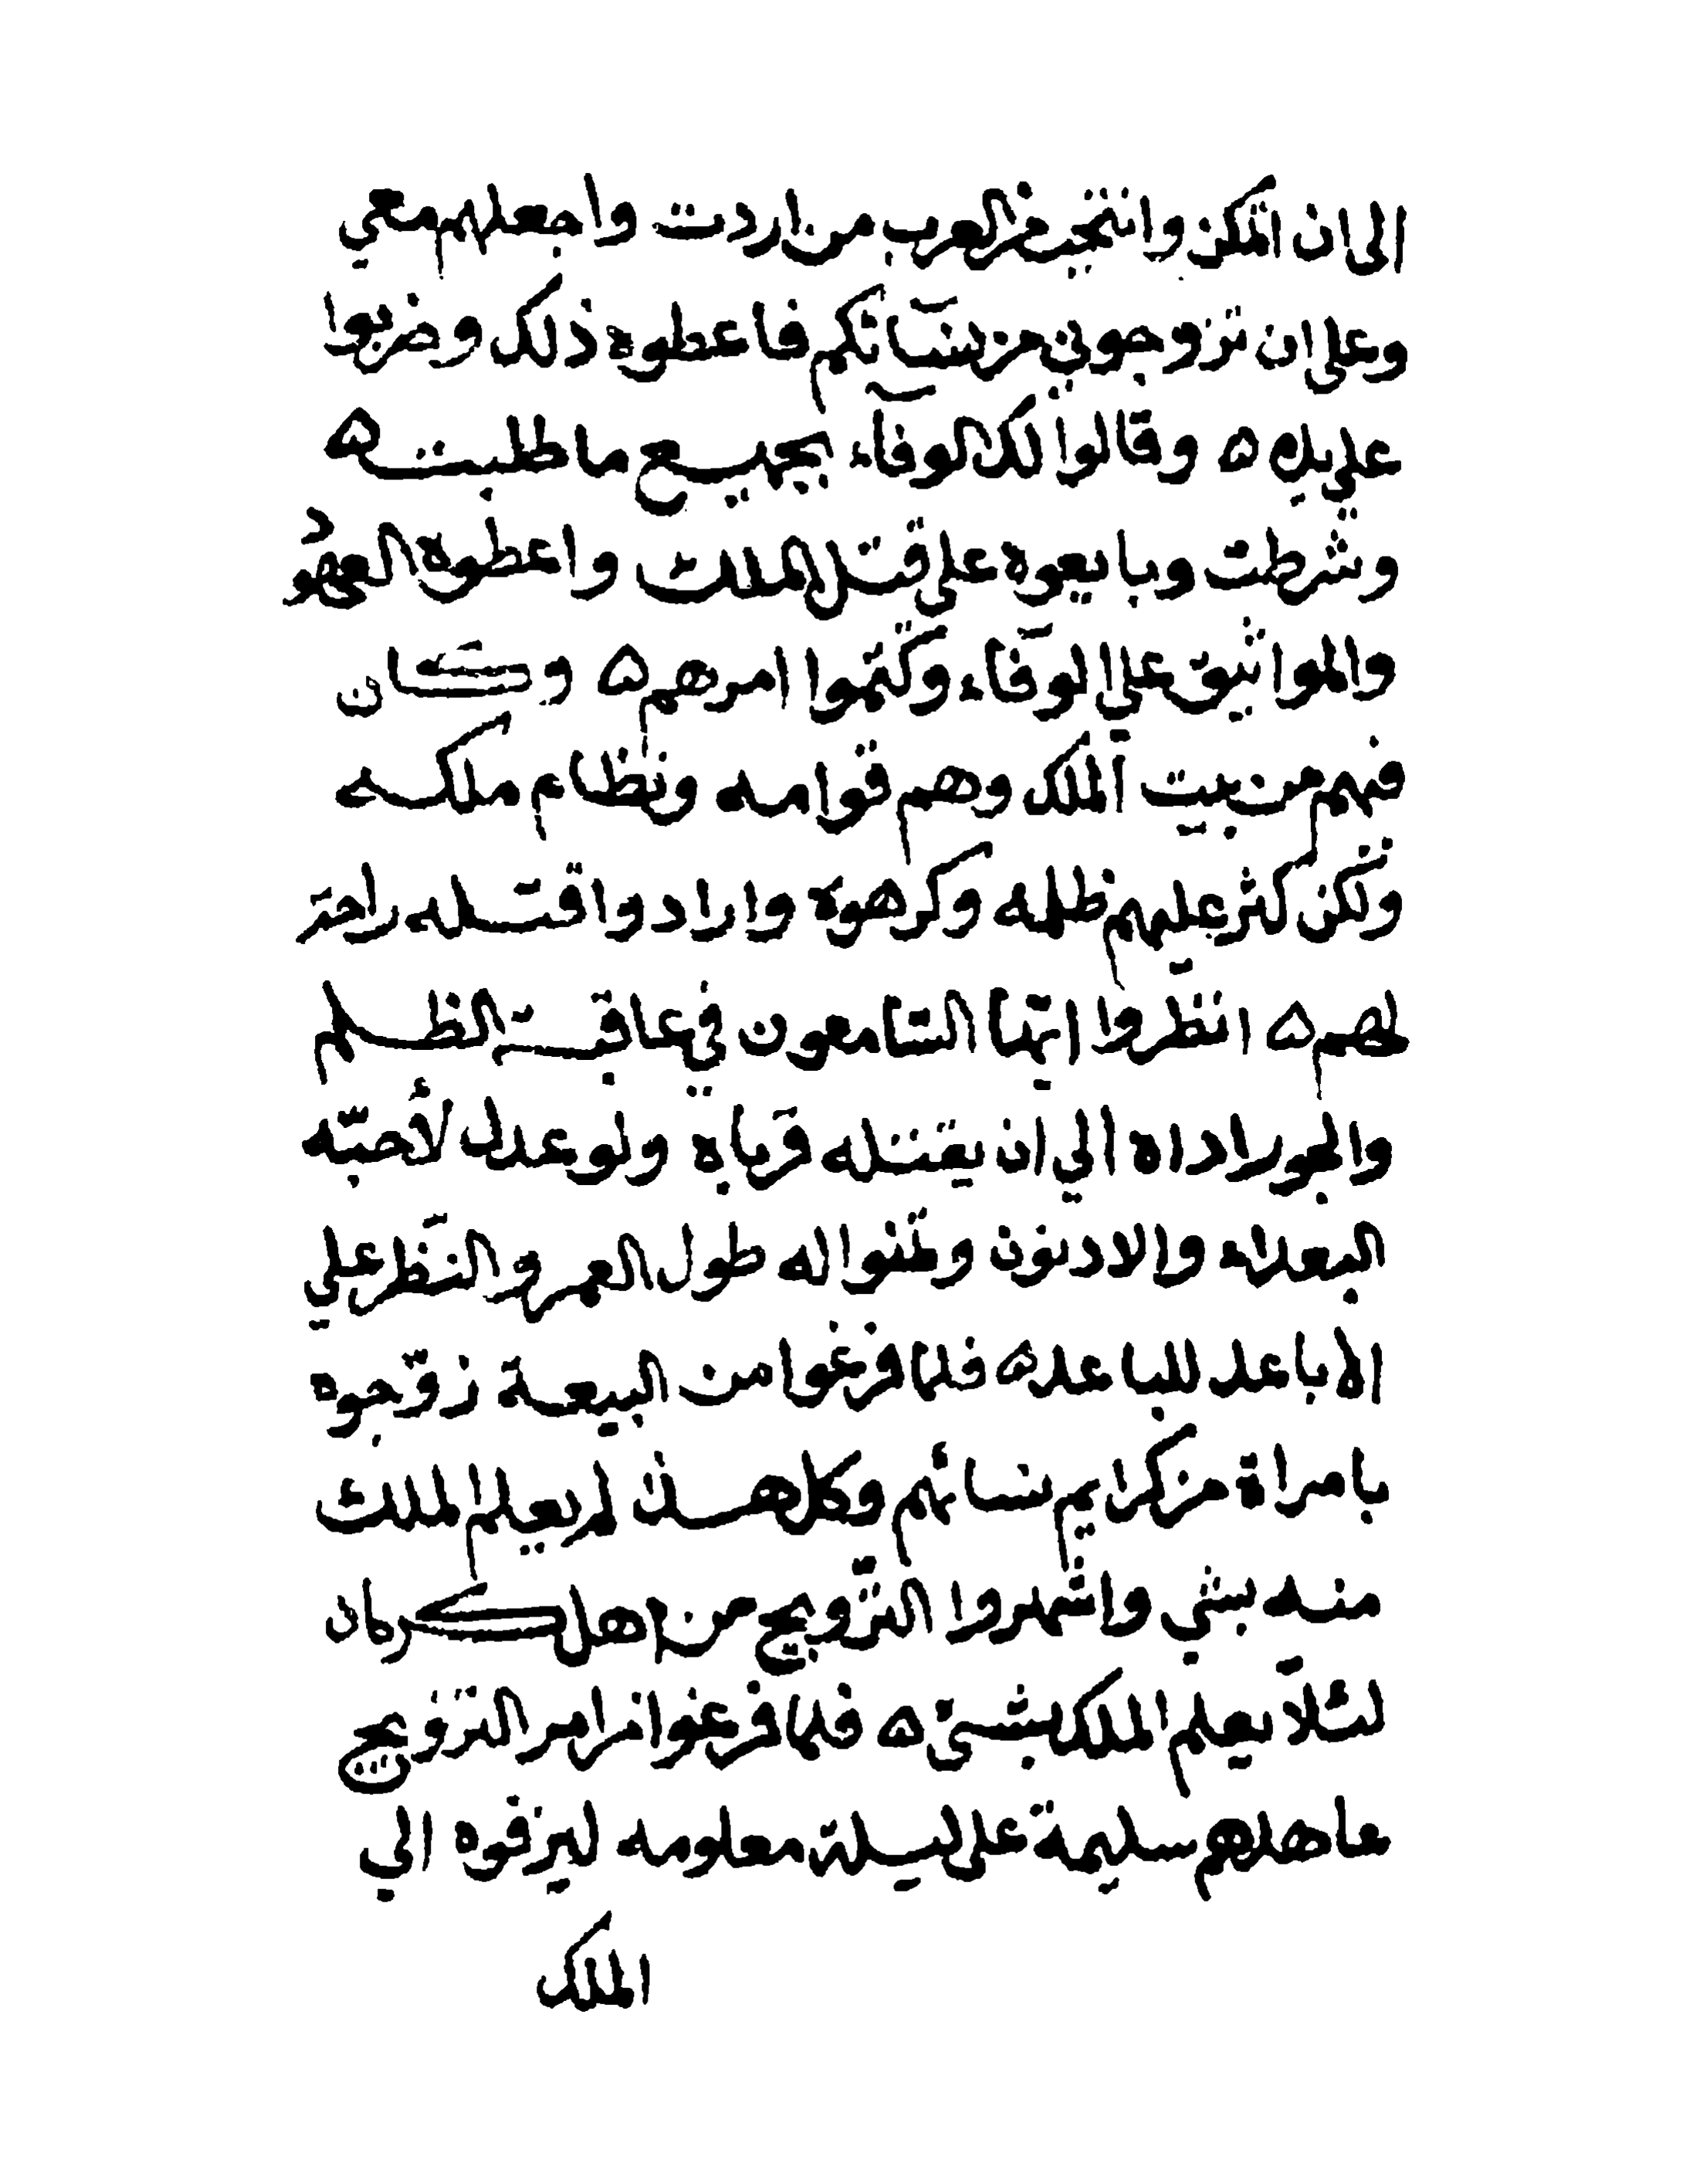 الى ان اتمكن وانتخب من العرب من اردت واجعلهم معي
وعلي ان تزوجوني من نسآئكم فاعطوه ذلك وضربوا
علي يده ۵ وقالوا لك الوفآء بجميع ما طلبت ۵
وشرطت وبايعوه على قتل الملك واعطوه العهود
والمواثيق علي الوفاء وكتموا امرهم ۵ وكان
فهم من بيت الملك وهم قوامه ونظام ملكه
ولكن كثر عليهم ظلمه وكرهوه وارادوا قتله راحة
لهم ۵ انظروا ايّها السّامعون في عاقبة الظلم
والجور اداه الي ان يقتله قرباه ولو عدل لأحبّه
البعداء والادنون وتمنوا له طول العمر والنّظر علي
الاباعد للباعد ۵ فلما فرغوا من البيعة زوّجوه
بامراة من كرايم نسائهم وكل هذا لم يعلم الملك
منه بشي واشهروا التّزويج من اهل كرمان
لئلّا يعلم الملك بشئ ۵ فلما فرغوا من امر التزويج
عاهدهم سليمة على ليلة معلومه ليزفوه الي
الملك